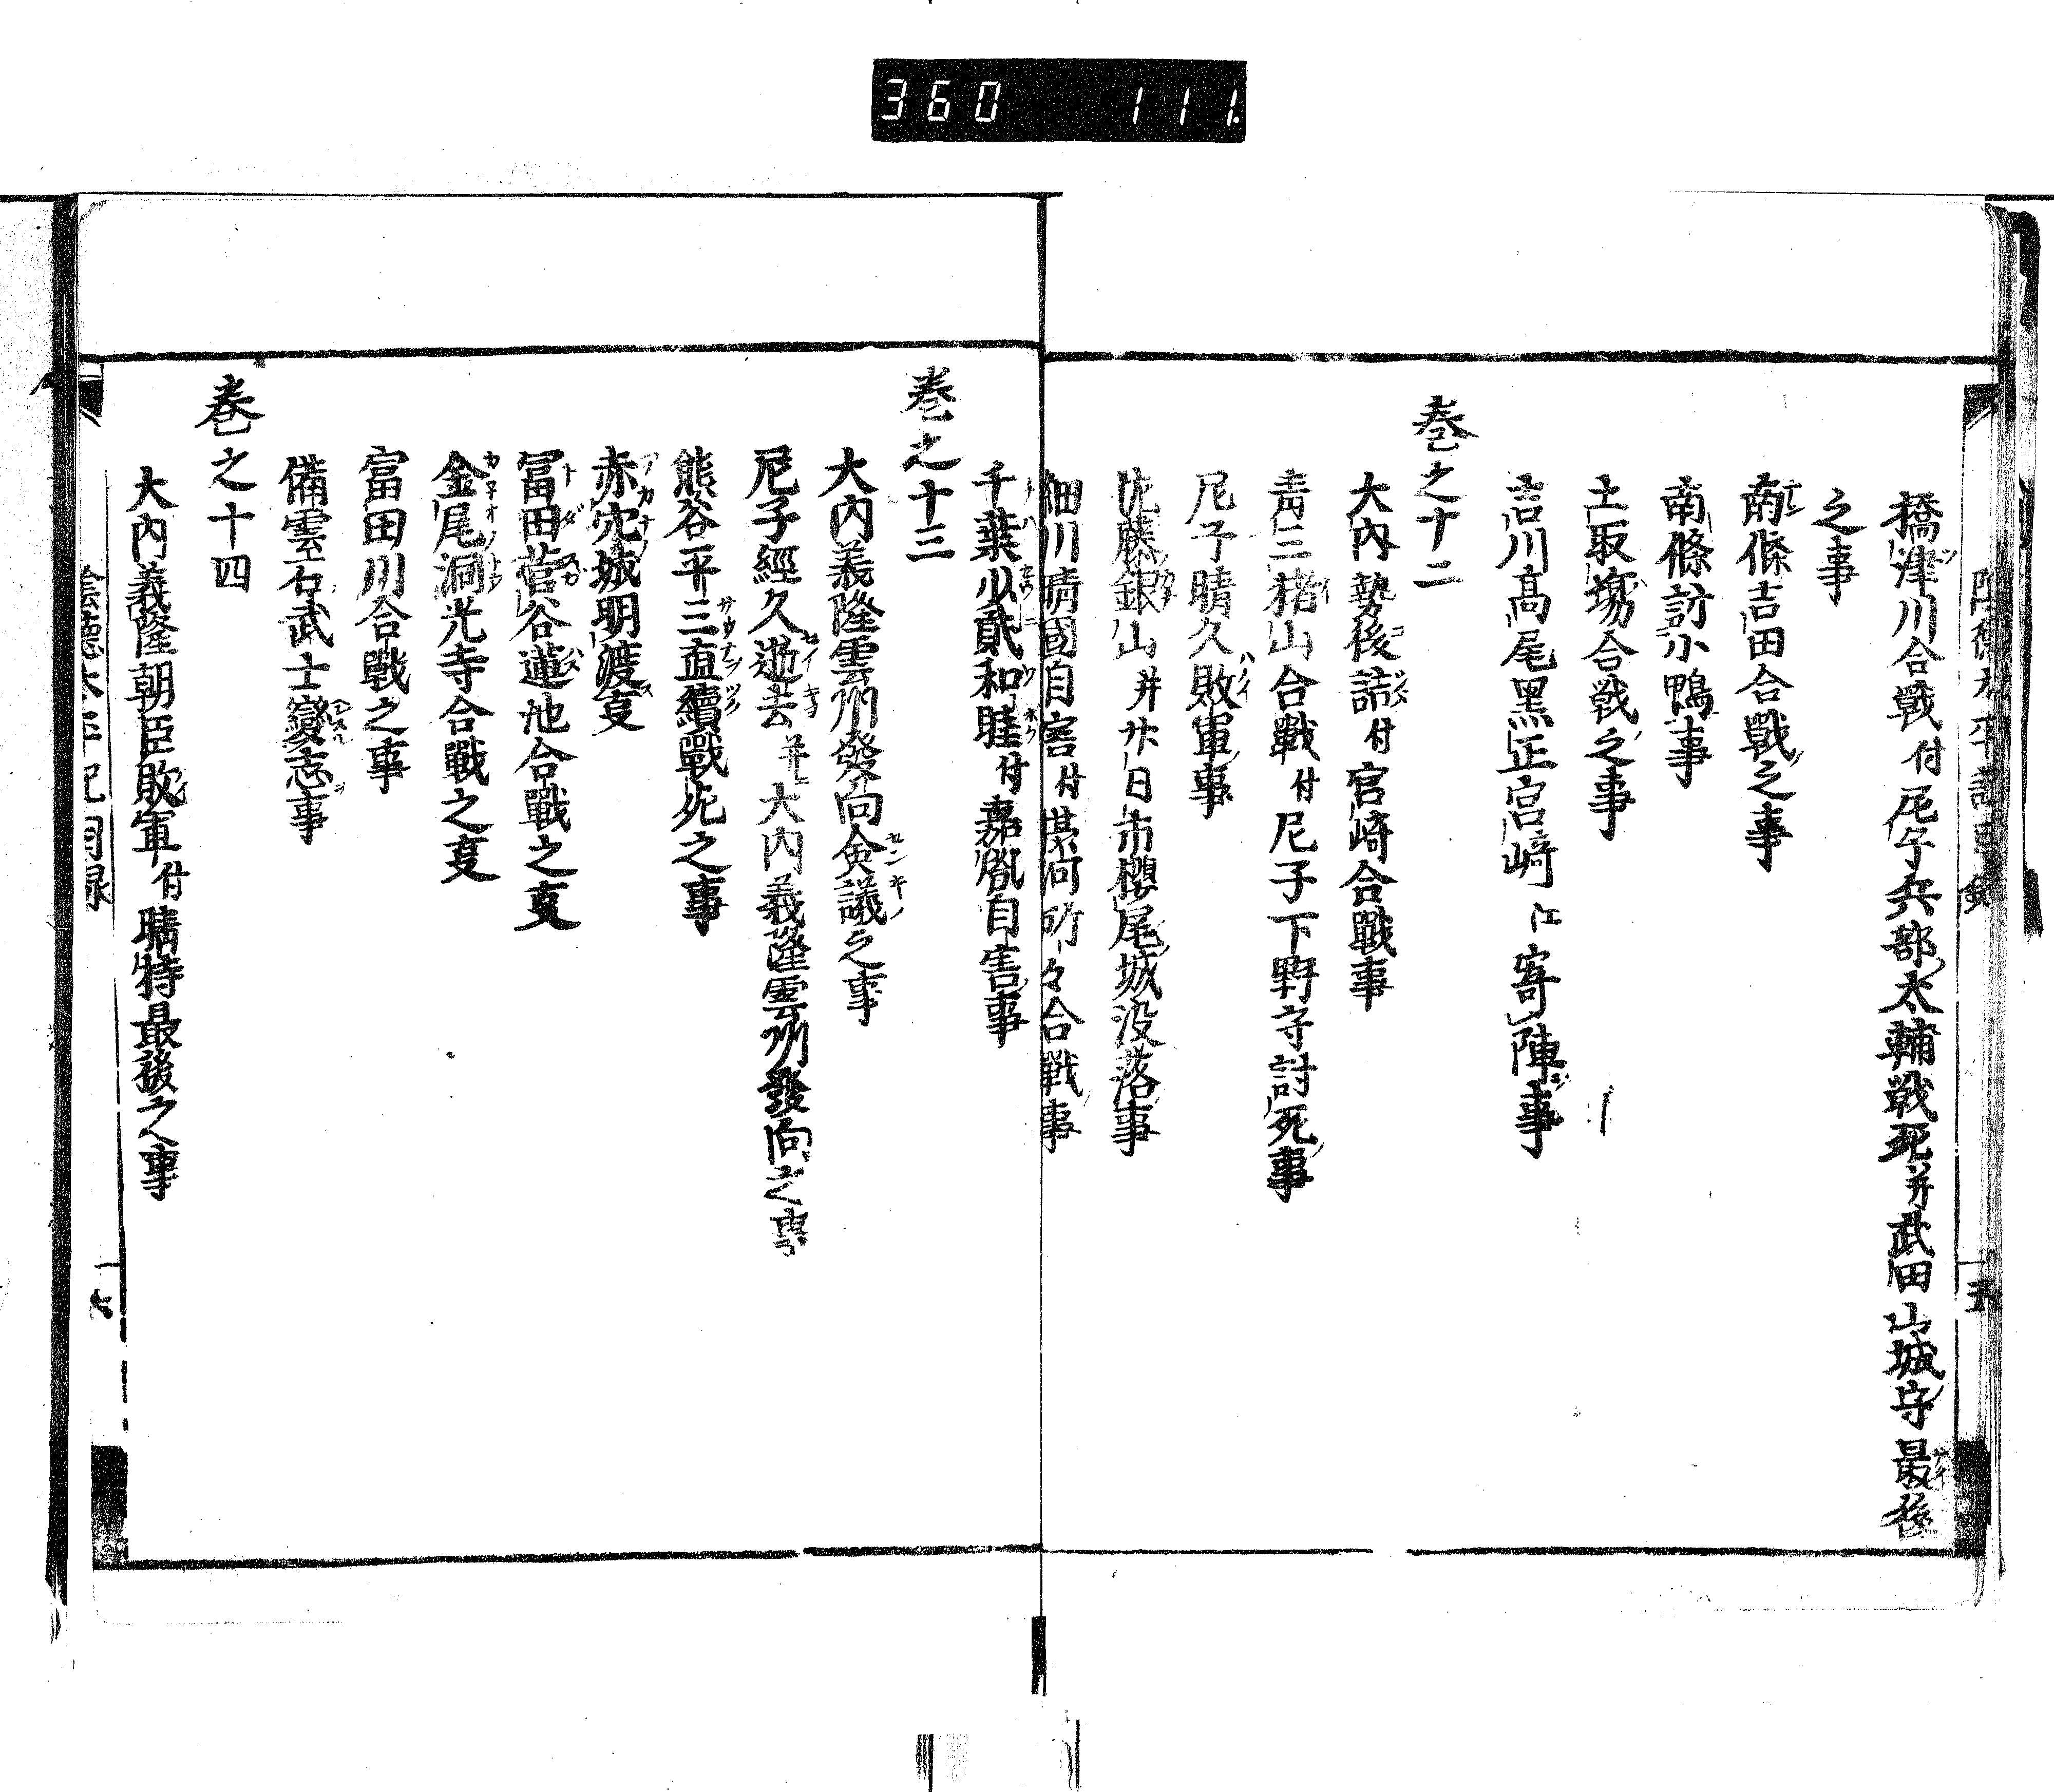 360 111
橋津川合戰付尼子兵部太輔戦死并武田山城守最後
之事
南條吉田合戰之事
南條討小鴨事
土取塲合戦之事
吉川髙尾黑正宮﨑江寄陣事
巻之十二
大内勢後詰付宮﨑合戰事
靑三猪山合戰付尼子下野守討死事
尼子晴久敗軍事
佐藤銀山并廿日市櫻尾城没落事
細川晴國自害付 河所々合戰事
千葉少貳和睦付嘉胤自害事
巻之十三
大内義隆雲州發向僉議之事
尼子經久逝去并大内義隆雲州發向之事
熊谷平三直續戰死之事
赤穴城明渡事
冨田菅谷蓮池合戰之事
金尾洞光寺合戰之事
富田川合戰之事
備雲石武士變志事
巻之十四
大内義隆朝臣敗軍付晴持最後之事
陰德太平記目録
六